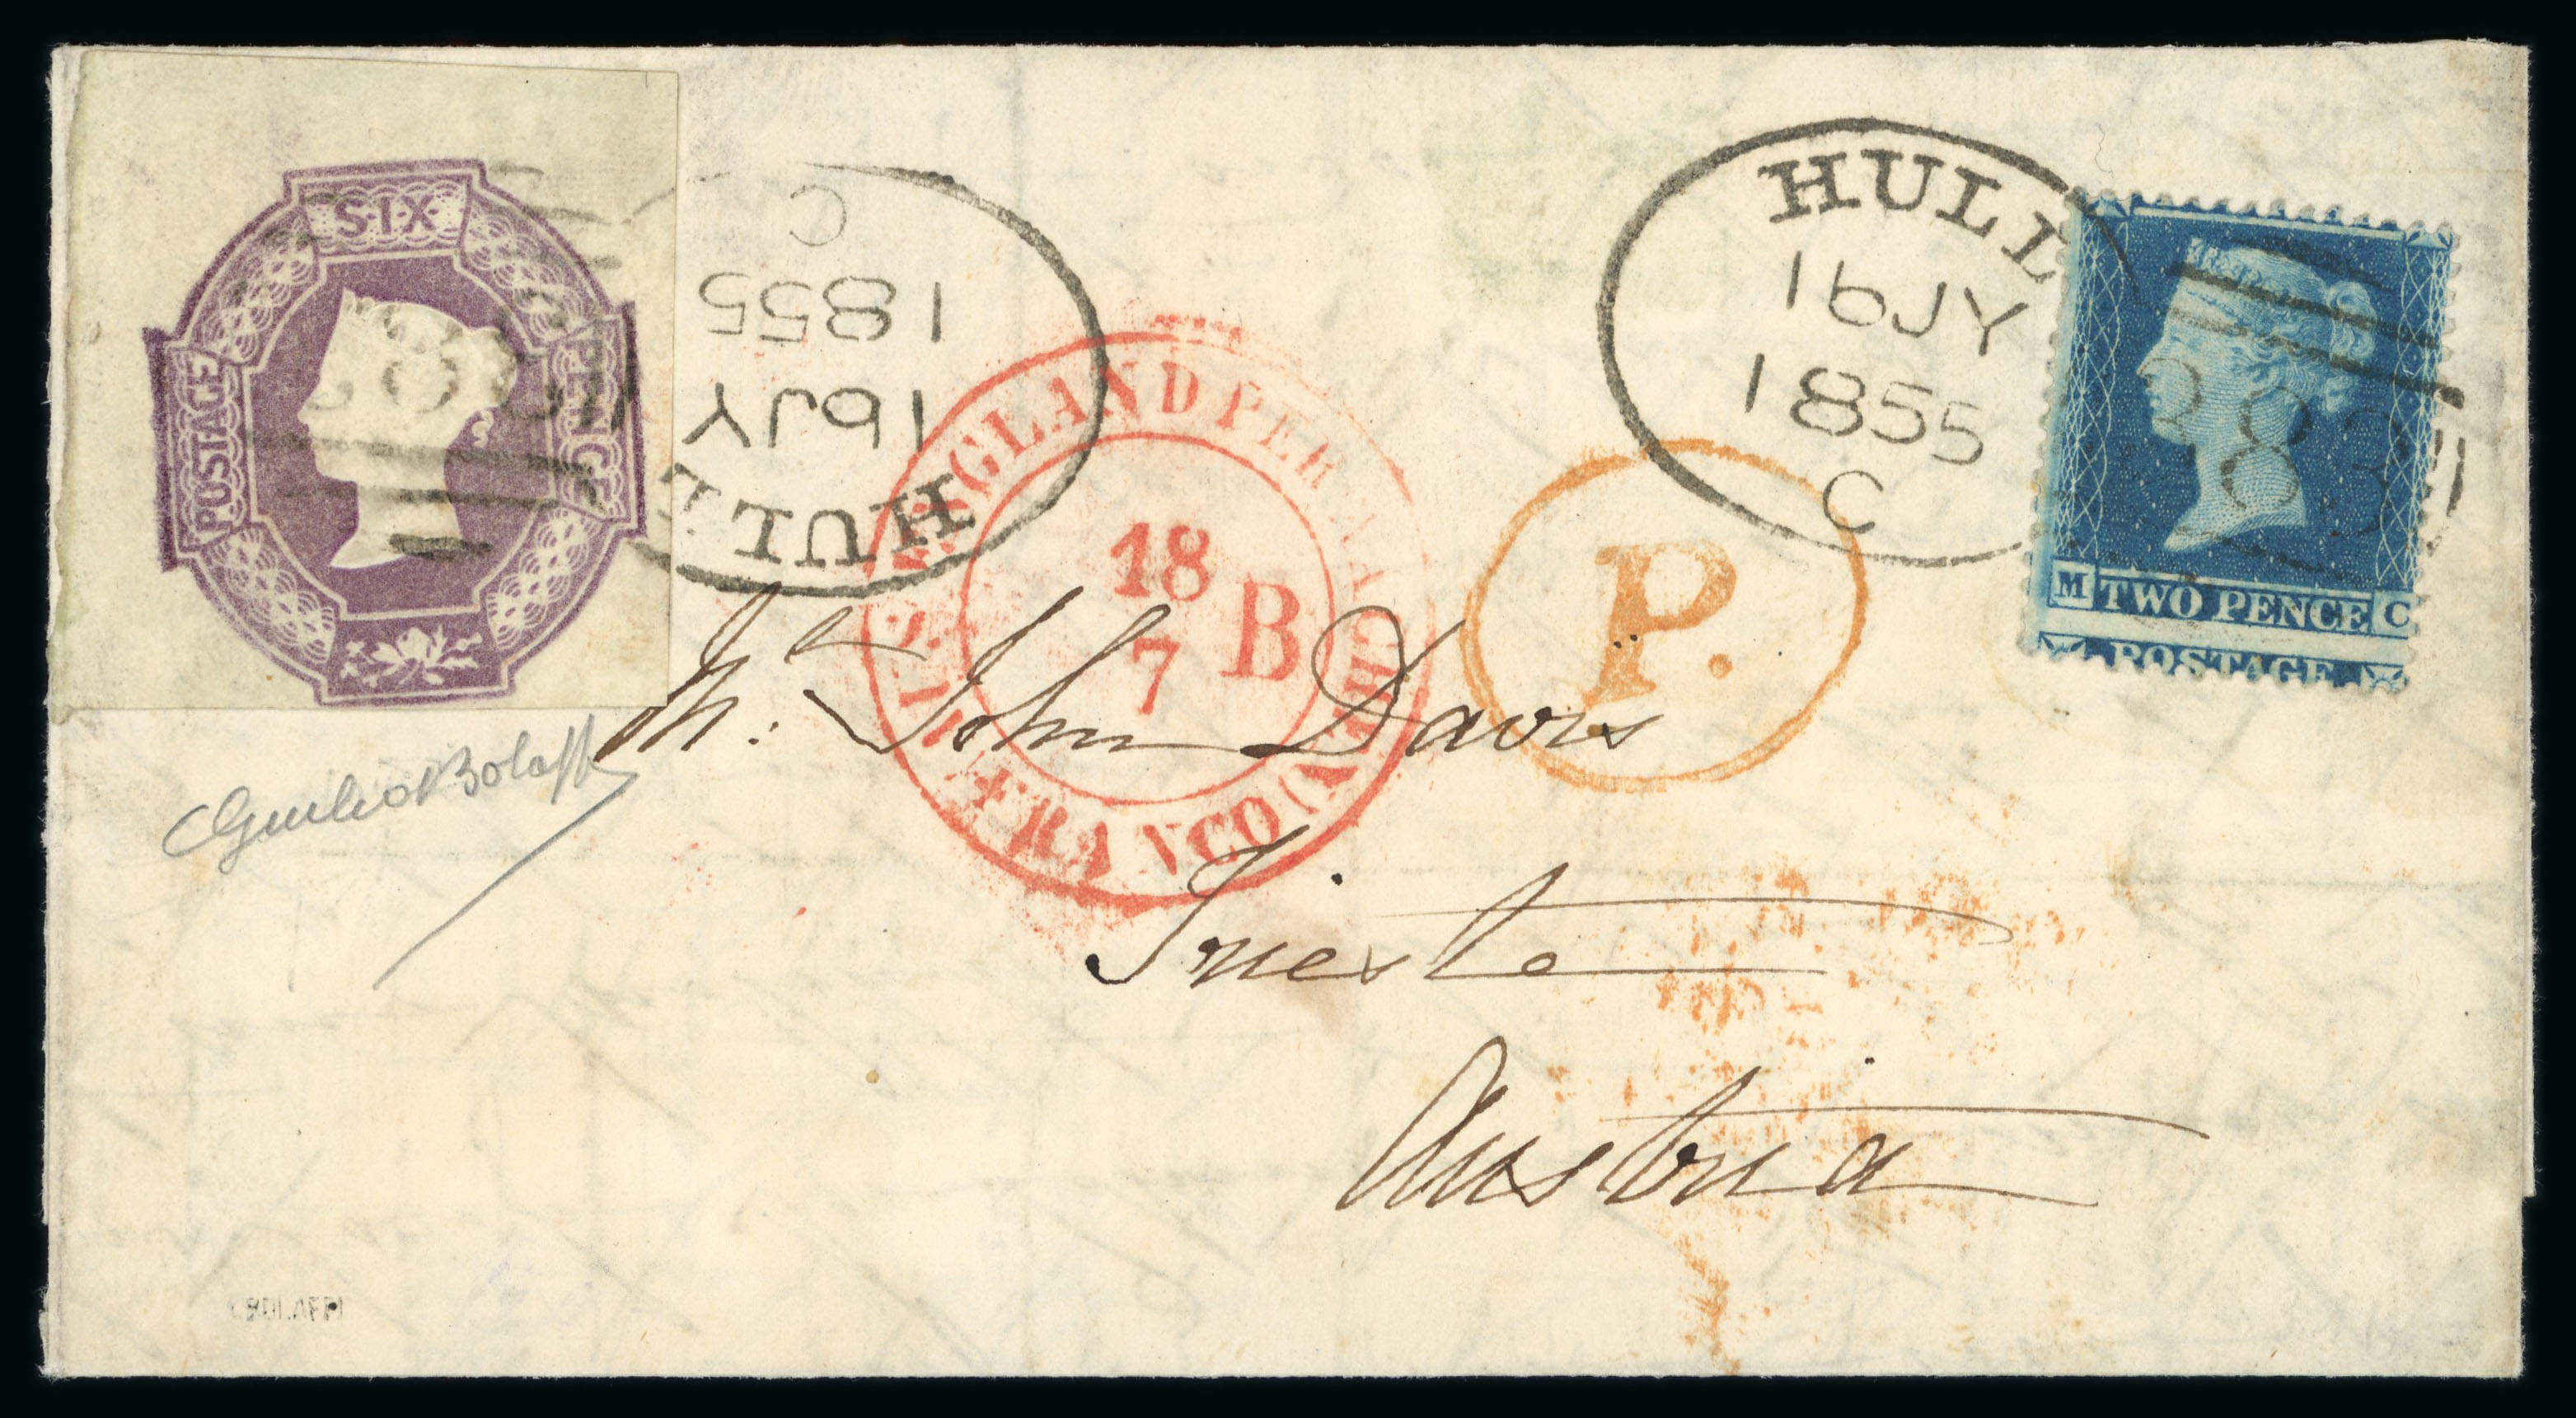 SIX
PENCE
POSTAGE
HULL
16JY
1855
C
HULL
16JY
1855
C
383
M TWO PENCE C
POSTAGE
ENGLAND PER AACHEN
18
7
B
FRANCO
P.
Mr. John Davis
Trieste
Austria
Giulio Bolaffi
BOLAFFI